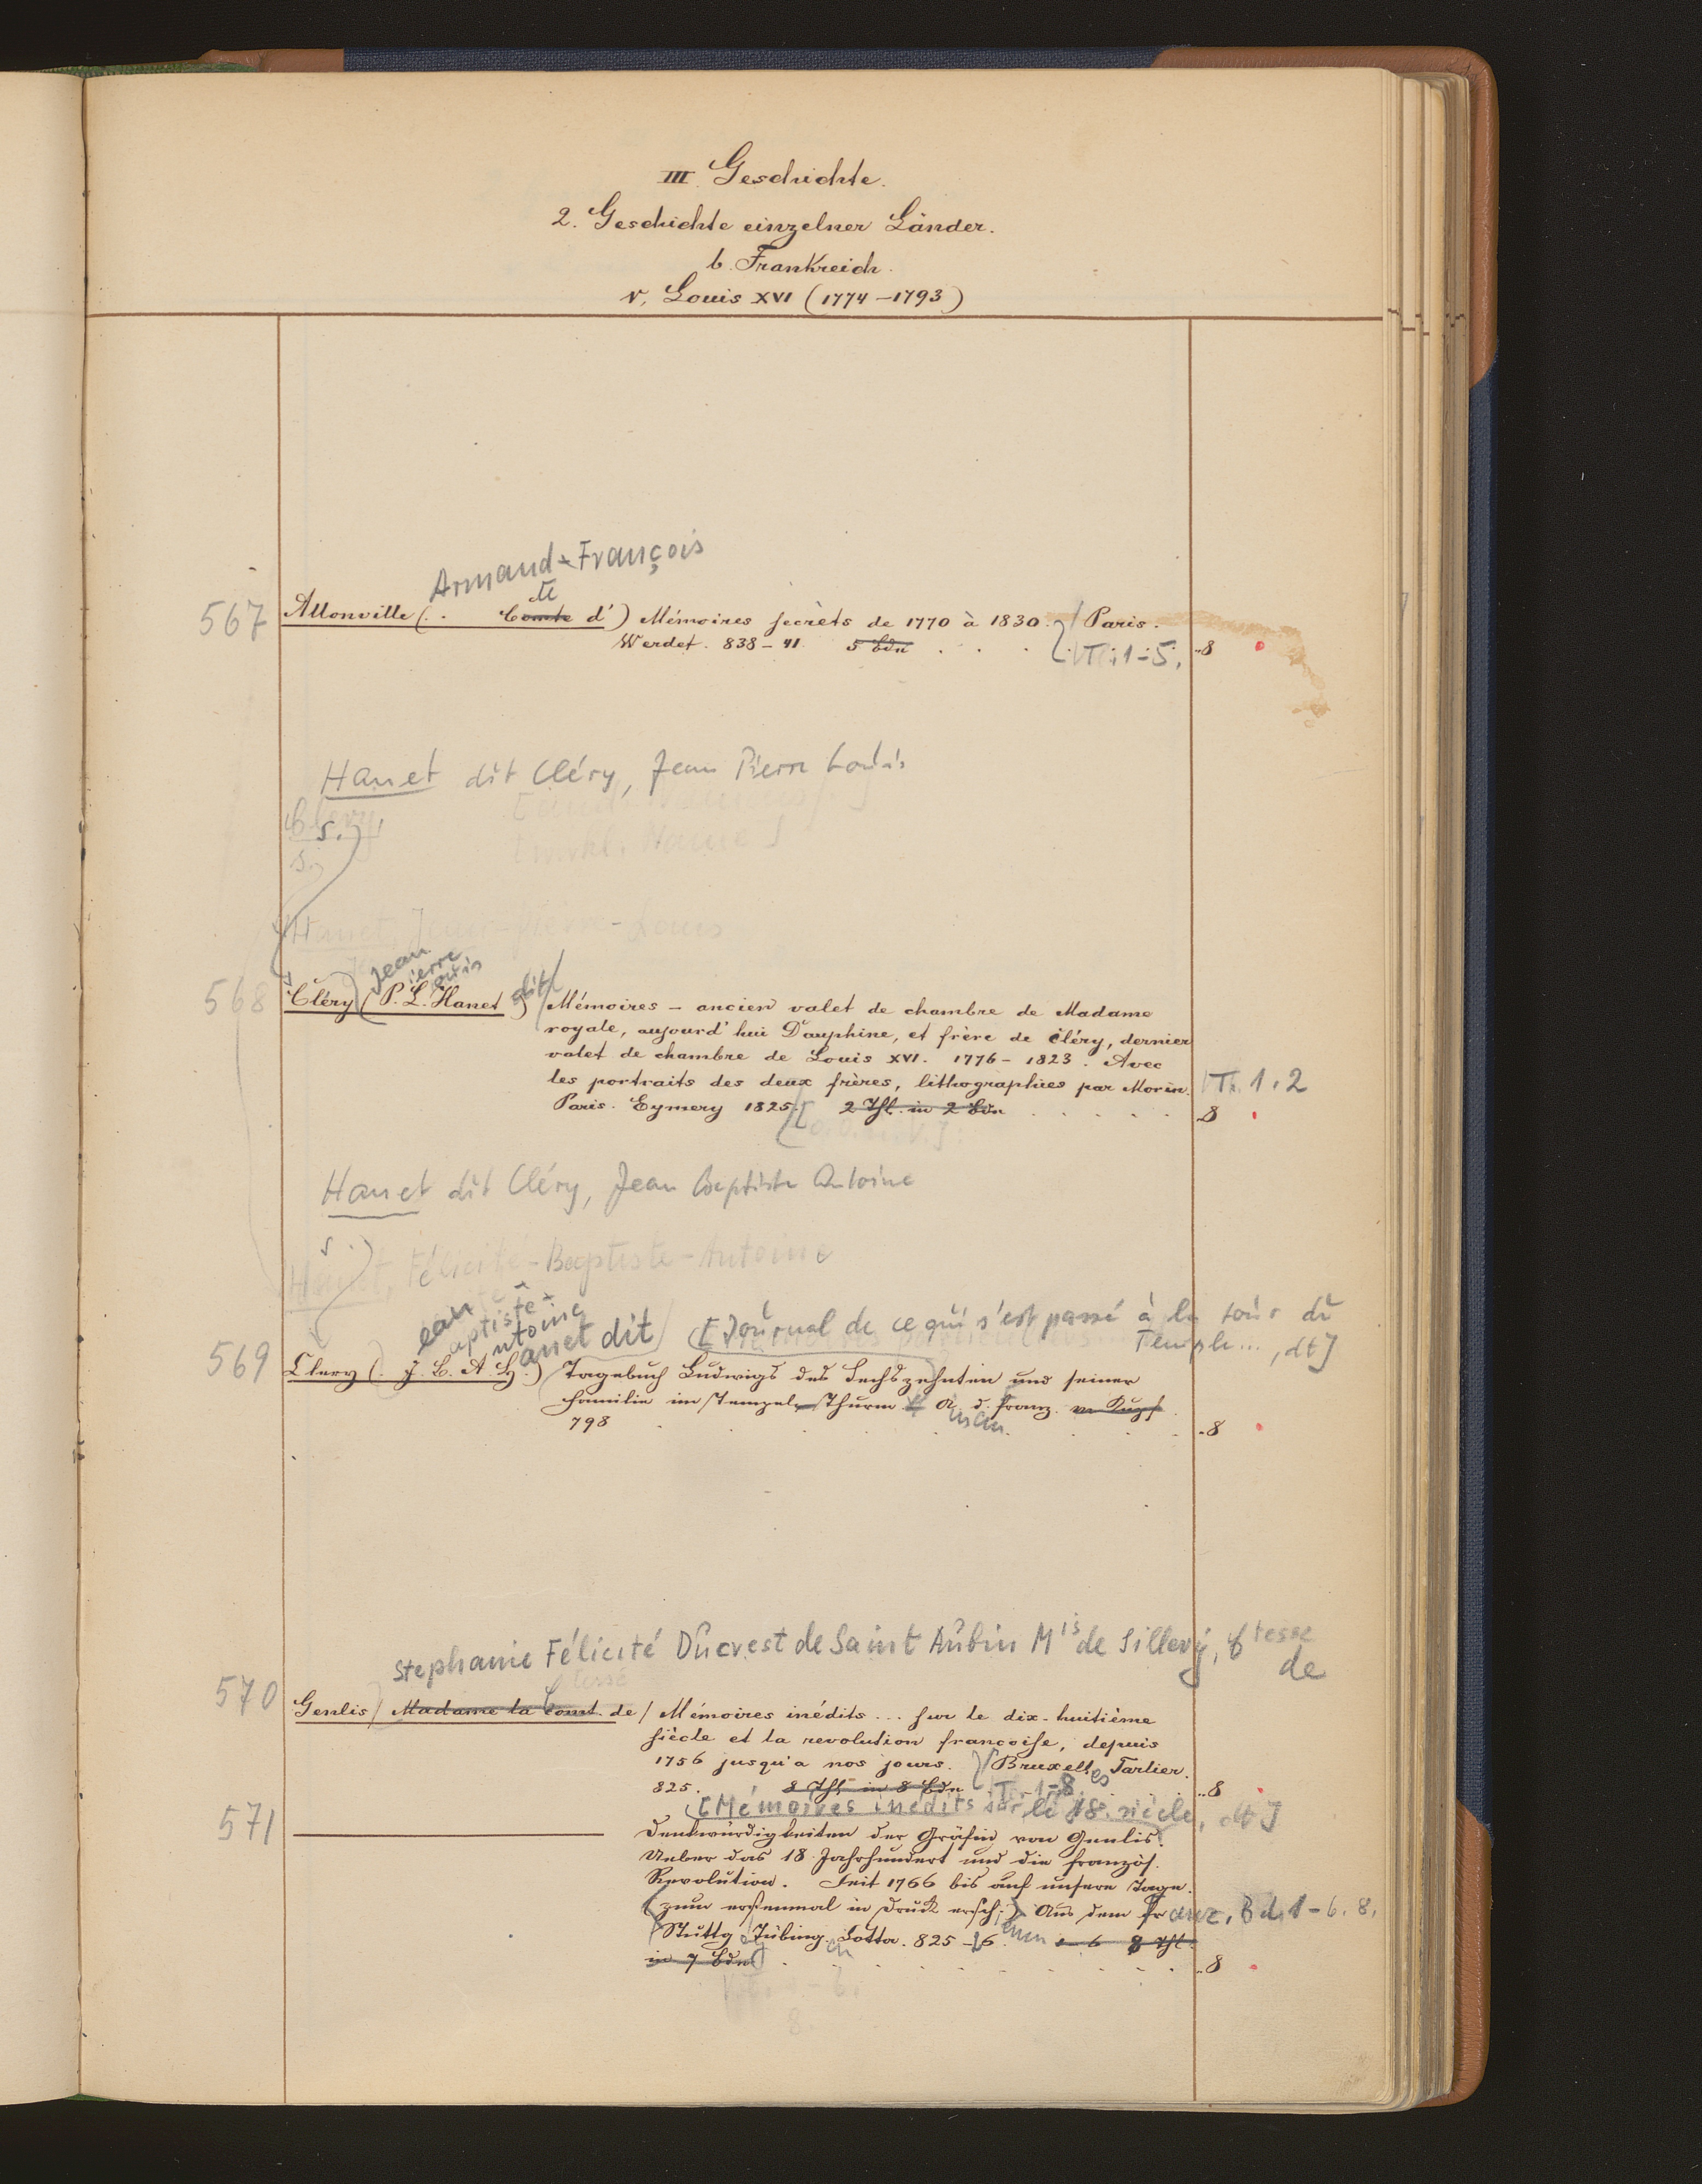 III. Geschichte.
2. Geschichte einzelner Länder.
b. Frankreich.
v. Louis XVI (1774-1793)
Armand-François
te
567 Allonville (. . Comte d') Mémoires secrèts de 1770 à 1830. Paris.
Werdet. 838-41. 5 Bdn . . . T. 1-5. ..8
Hanet dit Cléry, Jean Pierre Louis
Clery
s.
s.
Hanet, Jean-Pierre-Louis
Jean
ierre
ouis
568 Cléry (P. L. Hanet) dit Mémoires - ancien valet de chambre de Madame
royale, aujourd'hui Dauphine, et frère de Cléry, dernier
valet de chambre de Louis XVI. 1776-1823. Avec
les portraits des deux frères, lithographies par Morin. T. 1. 2
Paris. Eymery 1825. 2 Thl. in 2 Bdn . . . . . ..8
Hanet dit Cléry, Jean Baptiste Antoine
s.
Hanet, Félicité-Baptiste-Antoine
ean
aptiste-
ntoine
anet dit [Journal de ce qui s'est passé à la tour du
Temple..., dt]
569 Clery (. J. B. A. H.) Tagebuch Ludwigs des Sechszehnten und seiner
Familie im Tempel-Thurm. A. d. Franz.
798 . . . . . . ..8
Stephanie Félicité Ducrest de Saint Aubin Mis de Sillery, Ctesse
de
570 Genlis, Madame la Comt. de / Mémoires inédits... sur le dix-huitième
siècle et la revolution françoise, depuis
1756 jusqu'a nos jours. Bruxelles Tarlier.
825. 8 Thl in 8 Bdn T. 1-8. ..8
[Mémoires inédits sur le 18. siècle, dt]
571 Denkwürdigkeiten der Gräfin von Genlis.
Ueber das 18. Jahrhundert und die französ.
Revolution. Seit 1766 bis auf unsere Tage.
(zum erstenmal in Druck ersch.) Aus dem Franz. Bd. 1-6. 8.
Stuttg Tübing. Cotta. 825-6. 8 Thl.
in 7 Bdn . . . . . . ..8